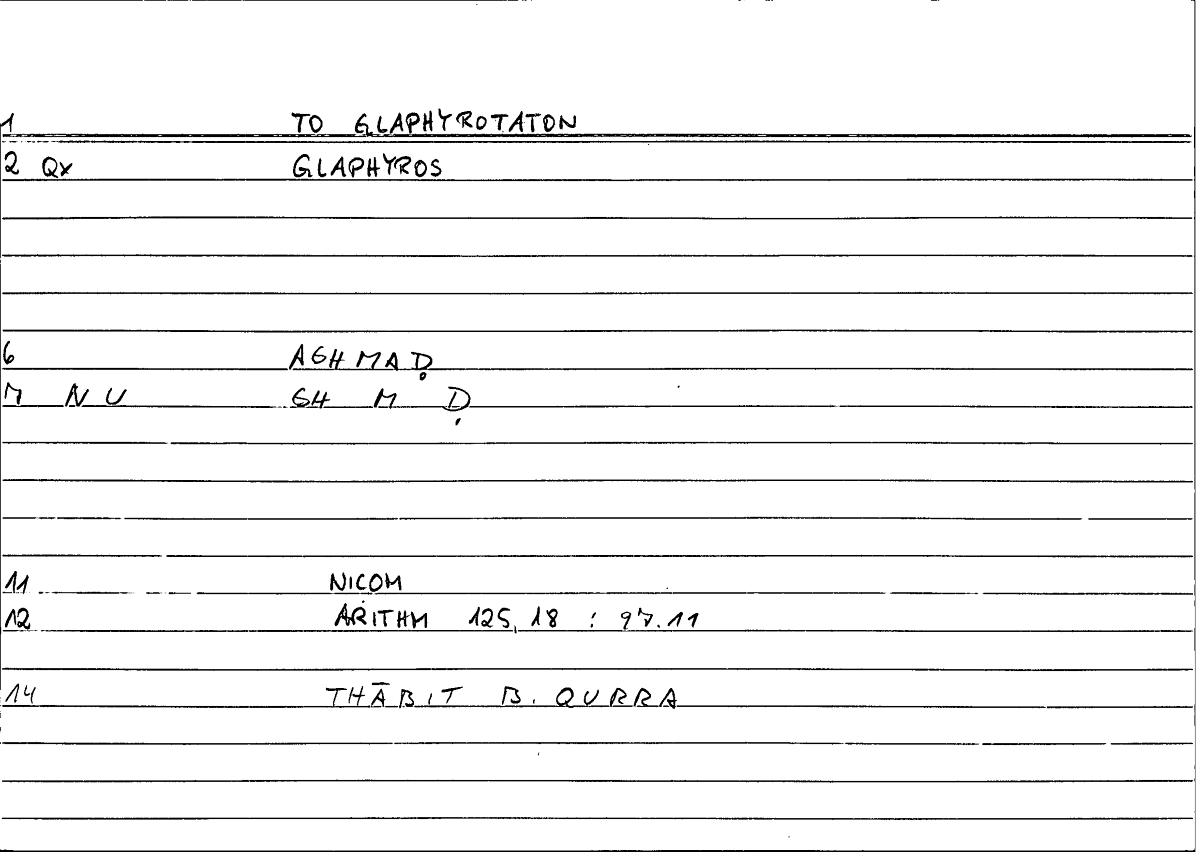 1 TO GLAPHYROTATON
2 Qx GLAPHYROS
6 AGHMAḌ
7 N U GH M Ḍ
11 NICOM
12 ARITHM 125,18 : 97.11
14 THĀBIT B. QURRA